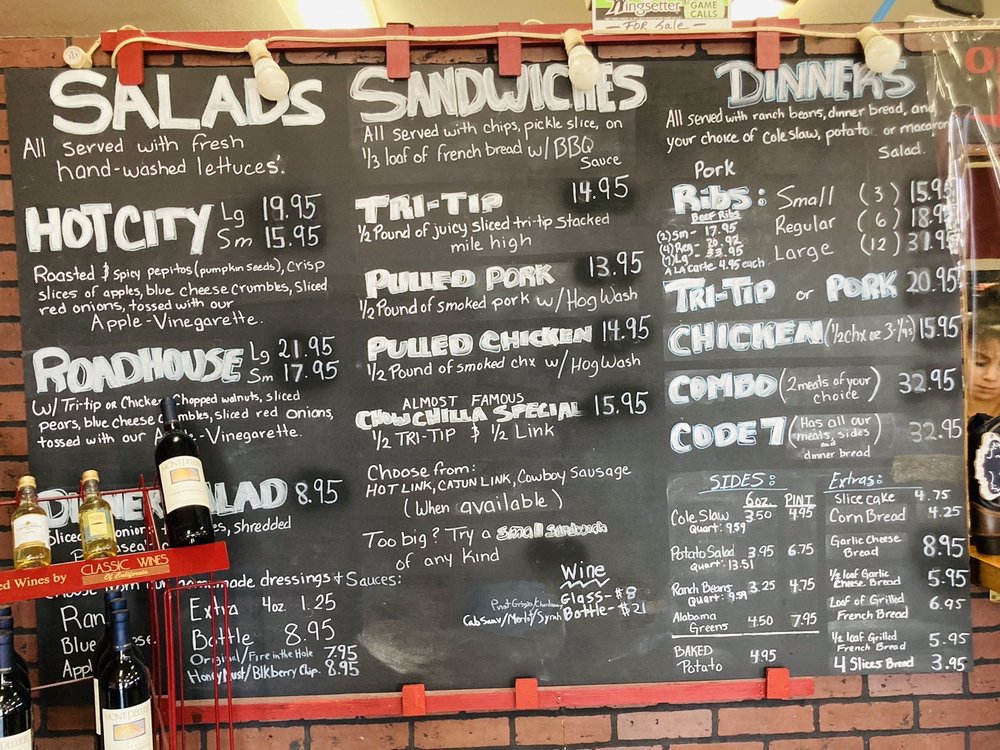 Wingsetter
GAME
CALLS
FOR Sale
SALADS
All served with fresh
hand-washed lettuces.
HOT CITY Lg 19.95
Sm 15.95
Roasted & Spicy pepitos (pumpkin seeds), crisp
slices of apples, blue cheese crumbles, Sliced
red onions, tossed with our
Apple-Vinegarette.
ROADHOUSE Lg 21.95
Sm 17.95
W/ Tri-tip or Chicken, Chopped walnuts, sliced
pears, blue cheese, sliced red onions,
tossed with our Vinegarette.
DINNER SALAD 8.95
shredded
homemade dressings & Sauces:
Extra 4oz. 1.25
Bottle 8.95
Original/Fire in the Hole 7.95
Honey Must/Blkberry Chip. 8.95
Ran
Blue
App
SANDWICHES
All served with chips, pickle slice, on
1/3 loaf of french bread w/ BBQ
Sauce
TRI-TIP 14.95
1/2 Pound of juicy sliced tri-tip stacked
mile high
PULLED PORK 13.95
1/2 Pound of smoked pork w/ Hog Wash
PULLED CHICKEN 14.95
1/2 Pound of smoked chx w/ Hog Wash
ALMOST FAMOUS
CHOWCHILLA SPECIAL 15.95
1/2 TRI-TIP & 1/2 Link
Choose from:
HOT LINK, CAJUN LINK, Cowboy Sausage
(When available)
Too big? Try a Small Sandwich
of any Kind
Wine
Glass-$8
Bottle-$21
Pinot Grigio/Chardonnay
Cab Sauv/Merlot/Syrah
DINNERS
All served with ranch beans, dinner bread, and
your choice of Cole slaw, potato or macaroni
Salad.
Pork
RIBS: Small (3) 15.95
Regular (6) 18.95
Large (12) 31.95
Beef Ribs
(2) Sm - 17.95
(4) Reg -
Lg - 33.95
A La Carte 4.95 each
TRI-TIP or PORK 20.95
CHICKEN (1/2 chx or 3-1/4's) 15.95
COMBO (2 meats of your
choice) 32.95
CODE 7 (Has all our
meats, sides
and
dinner bread) 32.95
SIDES:
6oz. PINT
Cole Slaw 3.50 4.95
Quart: 9.59
Potato Salad 3.95 6.75
Quart: 13.51
Ranch Beans 3.25 4.75
Quart: 9.59
Alabama
Greens 4.50 7.95
BAKED
Potato 4.95
Extras:
Slice cake 4.75
Corn Bread 4.25
Garlic Cheese
Bread 8.95
1/2 loaf Garlic
Cheese Bread 5.95
Loaf of Grilled
French Bread 6.95
1/2 loaf Grilled
French Bread 5.95
4 Slices Bread 3.95
ed Wines by CLASSIC WINES
Of California